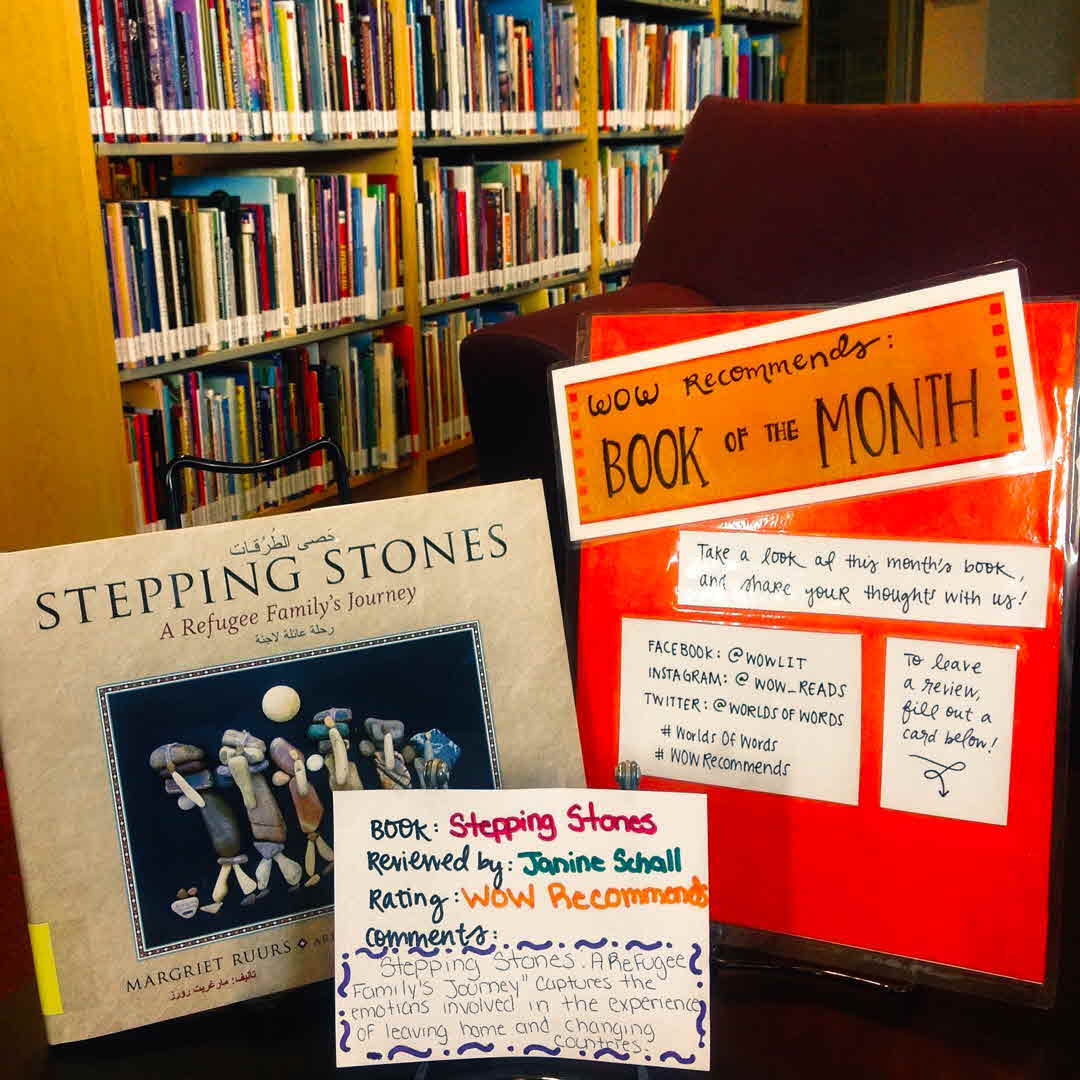 حَصى الطُرُقات
STEPPING STONES
A Refugee Family's Journey
رحلة عائلة لاجئة
MARGRIET RUURS
تأليف: مارغريت رورز
WOW Recommends:
BOOK OF THE MONTH
Take a look at this month's book,
and share your thoughts with us!
FACEBOOK: @WOWLIT
INSTAGRAM: @WOW_READS
TWITTER: @WORLDSOFWORDS
#Worlds Of Words
#WOWRecommends
To leave
a review,
fill out a
card below!
BOOK: Stepping Stones
Reviewed by: Janine Schall
Rating: WOW Recommends
Comments:
Stepping Stones: A Refugee
Family's Journey" captures the
emotions involved in the experience
of leaving home and changing
countries.